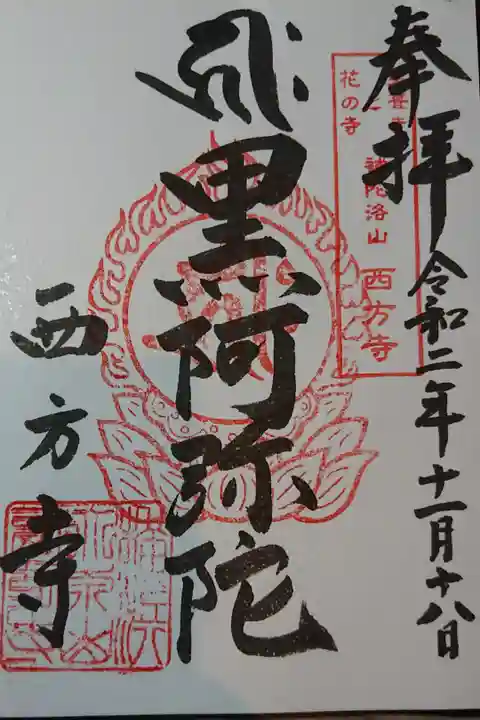 奉拝
令和二年十一月十八日
花の寺
補陀洛山
西方寺
黒阿弥陀
西方寺